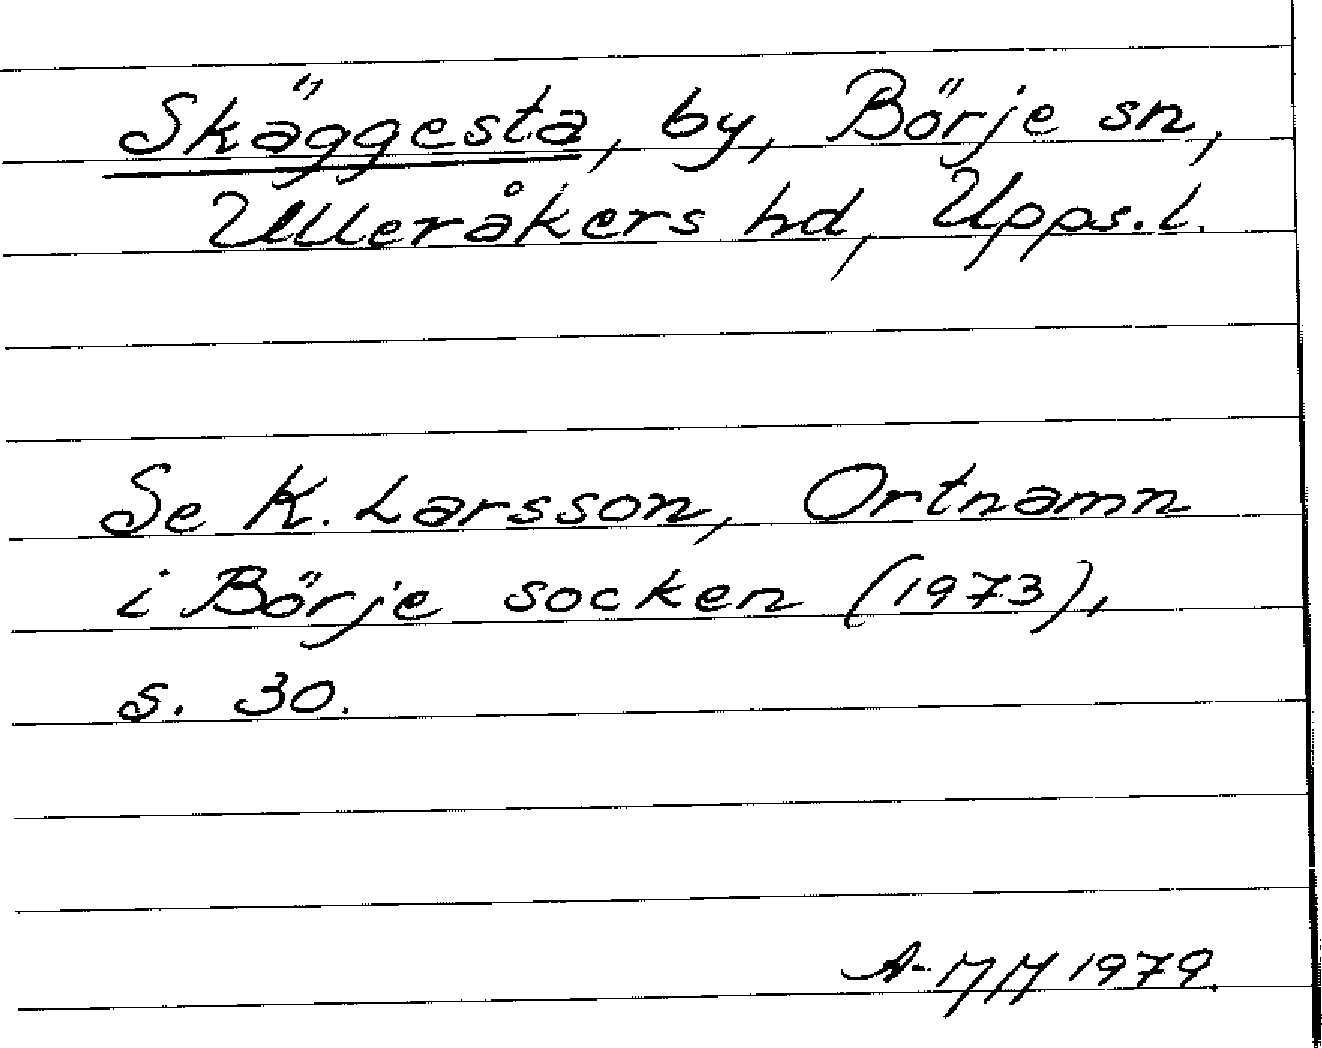 Skäggesta, by, Börje sn,
Ulleråkers hd, Upps. l.
Se K. Larsson, Ortnamn
i Börje socken (1973),
s. 30.
1979.